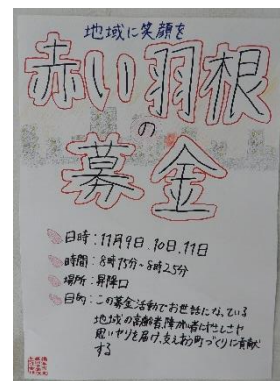 地域に笑顔を
赤い羽根
の
募金
日時：11月9日、10日、11日
時間：8時15分～8時25分
場所：昇降口
目的：この募金活動でお世話になっている
地域の高齢者、障がい者にやさしさ
思いやりを届け、支えあう町づくりに貢献
する